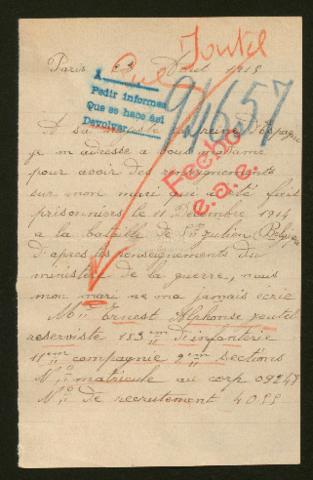 Joutel
Paris Aout 1915
A
Pedir informes
Que se hace así
Devolver
91657
A sa reine d'Espagne
je m adresse a vous madame
pour avoir des renseignements
sur mon mari qui a été fait
prisonniers le 11 Décembre 1914
a la bataille de St Julien Belgique
Fecho
e.a.c.
d'apres les renseignements du
ministere de la guerre, nous
mon mari ne ma jamais écrie
Mr Ernest Alphonse Joutel
reserviste 153em d'infanterie
11em compagnie 2em sections
No matricule au corp 09247
No de recrutement 4099